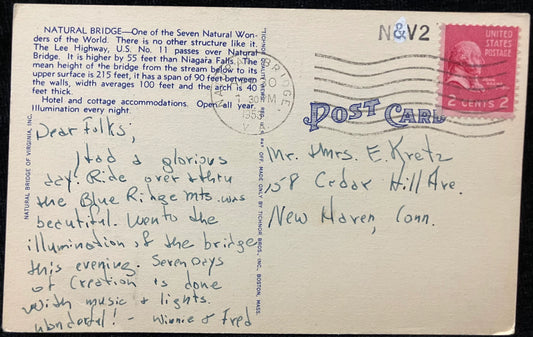 NATURAL BRIDGE—One of the Seven Natural Won-
ders of the World. There is no other structure like it.
The Lee Highway, U.S. No. 11 passes over Natural
Bridge. It is higher by 55 feet than Niagara Falls. The
mean height of the bridge from the stream below to its
upper surface is 215 feet, it has a span of 90 feet between
the walls, width averages 100 feet and the arch is 40
feet thick.
Hotel and cottage accommodations. Open all year.
Illumination every night.
Dear Folks;
Had a glorious
day. Ride over & thru
the Blue Ridge Mts. was
beautiful. Went to the
illumination of the bridge
this evening. Seven Days
of Creation is done
with music & lights.
Wonderful! - Winnie & Fred
NATURAL BRIDGE OF VIRGINIA, INC.
MADE ONLY BY TICHNOR BROS., INC., BOSTON, MASS.
NATURAL BRIDGE,
30 PM
VA.
N&V2
POST CARD
UNITED STATES
POSTAGE
2 CENTS 2
Mr. & Mrs. E. Kretz
158 Cedar Hill Ave.
New Haven, Conn.